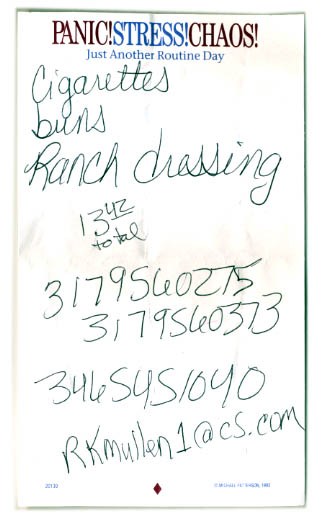 PANIC!STRESS!CHAOS!
Just Another Routine Day
Cigarettes
buns
Ranch dressing
13.42
total
3179560275
3179560373
3465451040
RKmullen1@cs.com
20130